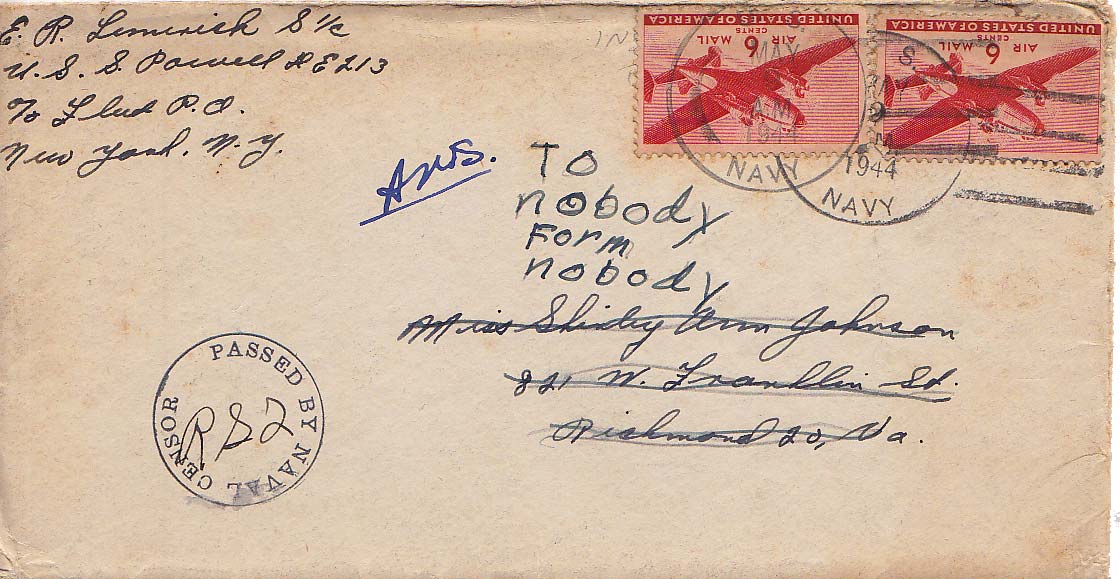 E. R. Limerick S 1/c
U. S. S. Powell DE213
℅ Fleet P.O.
New York, N. Y.
UNITED STATES OF AMERICA
AIR MAIL
6 CENTS
UNITED STATES OF AMERICA
AIR MAIL
6 CENTS
MAY
A.M.
NAVY
S.
9
1944
NAVY
Ans.
TO
nobody
Form
nobody
Miss Shirley Ann Johnson
821 W. Franklin St.
Richmond 20, Va.
PASSED BY NAVAL CENSOR